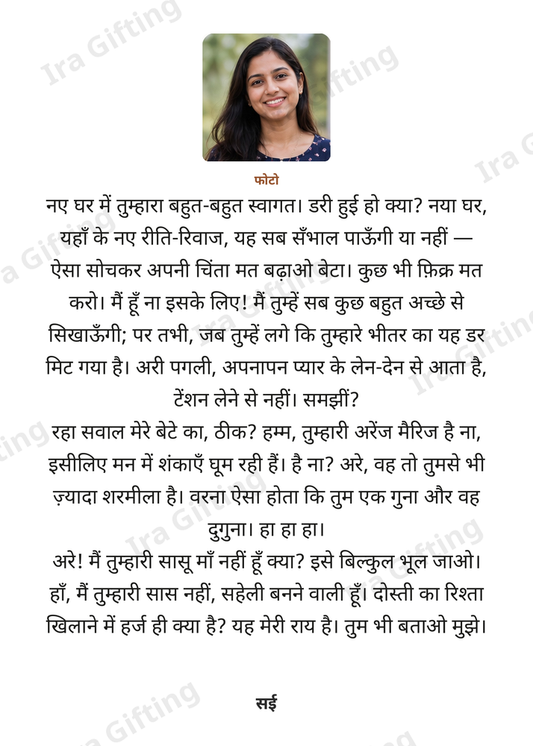 फोटो
नए घर में तुम्हारा बहुत-बहुत स्वागत। डरी हुई हो क्या? नया घर,
यहाँ के नए रीति-रिवाज, यह सब सँभाल पाऊँगी या नहीं —
ऐसा सोचकर अपनी चिंता मत बढ़ाओ बेटा। कुछ भी फ़िक्र मत
करो। मैं हूँ ना इसके लिए! मैं तुम्हें सब कुछ बहुत अच्छे से
सिखाऊँगी; पर तभी, जब तुम्हें लगे कि तुम्हारे भीतर का यह डर
मिट गया है। अरी पगली, अपनापन प्यार के लेन-देन से आता है,
टेंशन लेने से नहीं। समझीं?
रहा सवाल मेरे बेटे का, ठीक? हम्म, तुम्हारी अरेंज मैरिज है ना,
इसीलिए मन में शंकाएँ घूम रही हैं। है ना? अरे, वह तो तुमसे भी
ज़्यादा शरमीला है। वरना ऐसा होता कि तुम एक गुना और वह
दुगुना। हा हा हा।
अरे! मैं तुम्हारी सासू माँ नहीं हूँ क्या? इसे बिल्कुल भूल जाओ।
हाँ, मैं तुम्हारी सास नहीं, सहेली बनने वाली हूँ। दोस्ती का रिश्ता
खिलाने में हर्ज ही क्या है? यह मेरी राय है। तुम भी बताओ मुझे।
सई
Ira Gifting